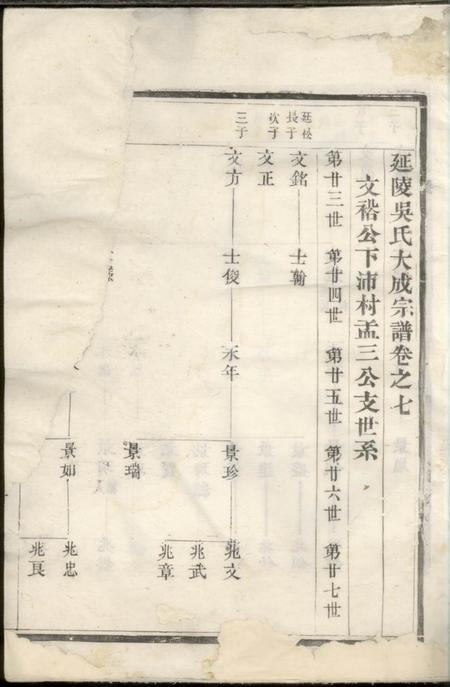 延陵吳氏大成宗譜卷之七
文褣公下沛村孟三公支世系
第廿三世 第廿四世 第廿五世 第廿六世 第廿七世
廷松長子 文銘 士翰
次子 文正
三子 文方 士俊 永年 景珍 兆文
兆武
兆章
景瑞
景如 兆忠
兆良